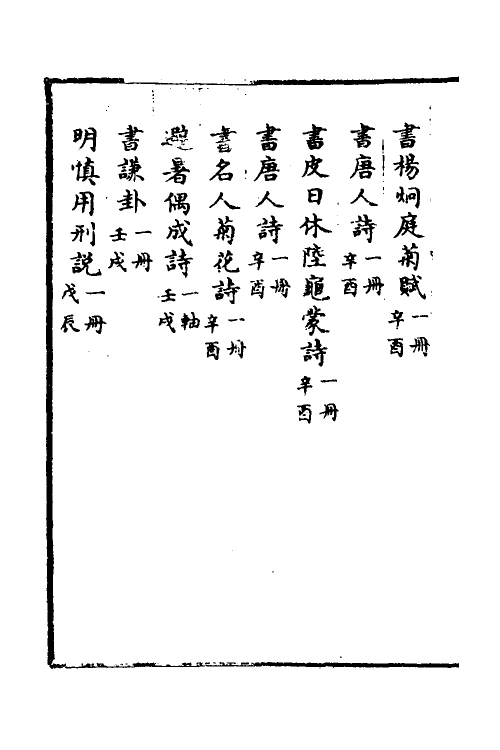 書楊炯庭菊賦一冊辛酉
書唐人詩一冊辛酉
書皮日休陸龜蒙詩一冊辛酉
書唐人詩一冊辛酉
書名人菊花詩一冊辛酉
避暑偶成詩一軸壬戌
書謙卦一冊壬戌
明慎用刑説一冊戊辰